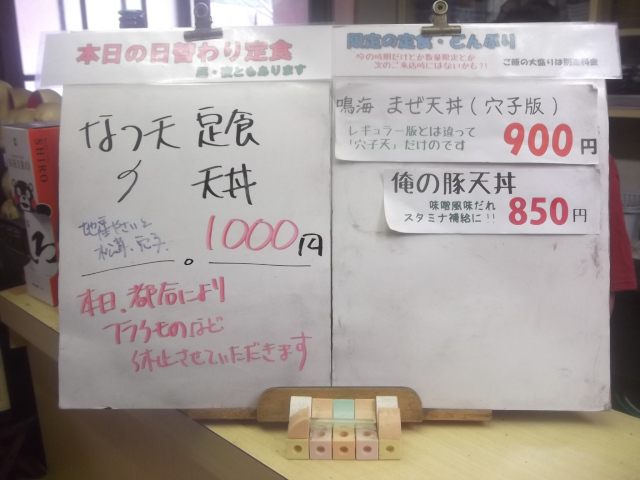 本日の日替わり定食
昼・夜ともあります
なつ天 定食
〃 天丼
地産やさいと
1000円
本日、都合により
フライものなど
休止させていただきます
限定の定食・どんぶり
今の時期だけとか数量限定とか
次のご来店時にはないかも?!
ご飯の大盛りは別途料金
鳴海 まぜ天丼(穴子版)
レギュラー版とは違って
「穴子天」だけのです
900円
俺の豚天丼
味噌風味だれ
スタミナ補給に!!
850円
SHIRO